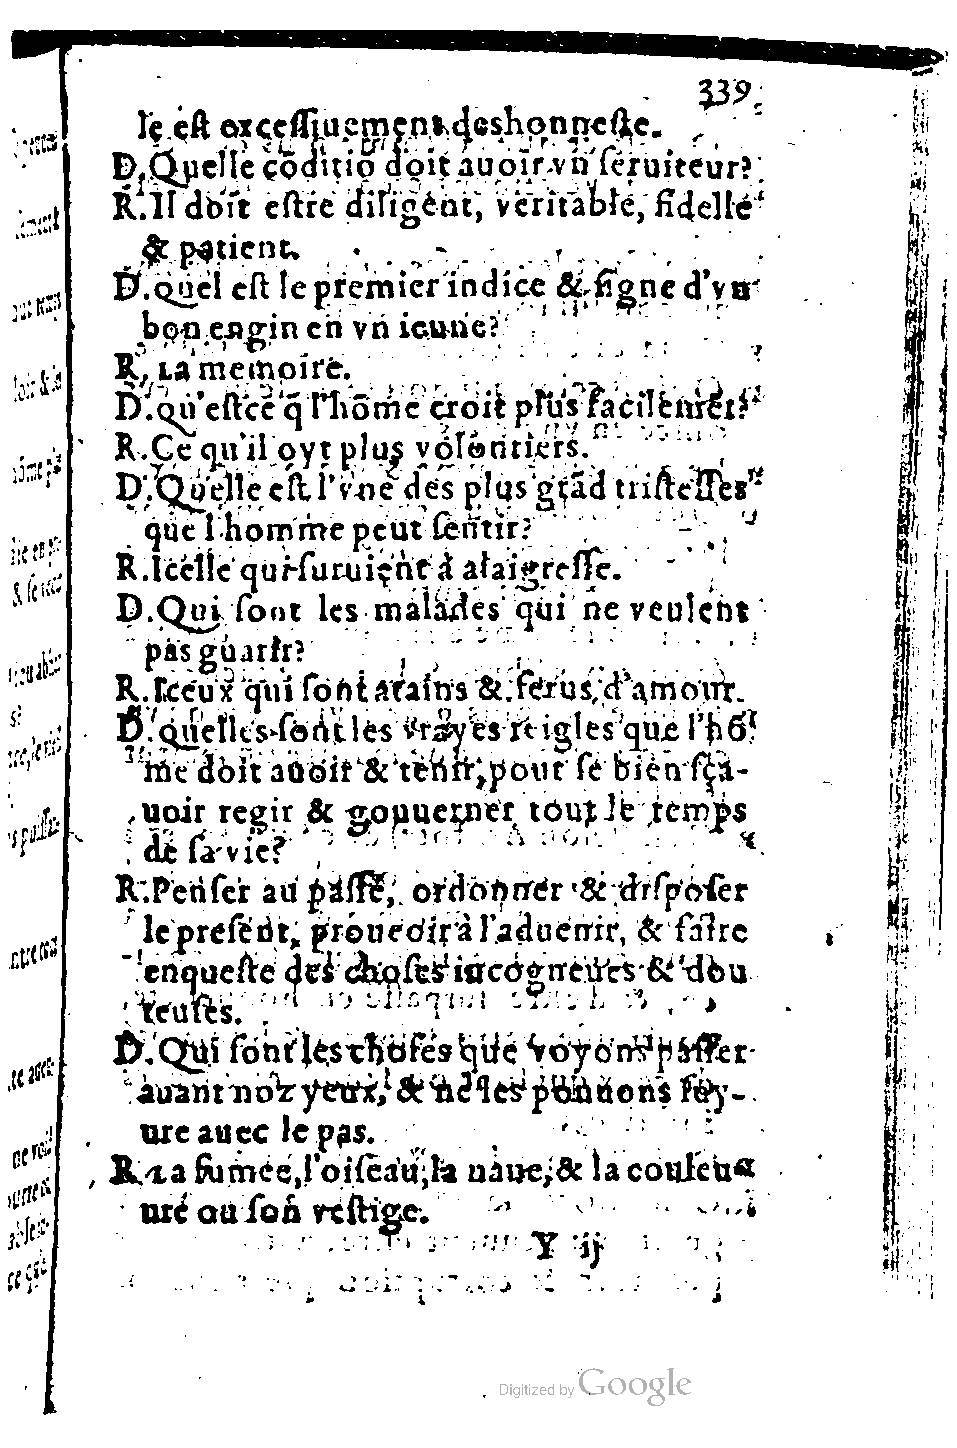 339
le est excessiuement deshonneste.
D. Quelle cõditiõ doit auoir vn seruiteur?
R. Il doit estre diligent, veritable, fidelle
& patient.
D. quel est le premier indice & signe d'vn
bon engin en vn ieune?
R, La memoire.
D. qu'estce q̃ l'hõme croit plus facilemẽt?
R. Ce qu'il oyt plus volontiers.
D. Quelle est l'vne des plus grãd tristesses
que l'homme peut sentir?
R. Icelle qui suruient à alaigresse.
D. Qui sont les malades qui ne veulent
pas guarir?
R. Iceux qui sont atains & ferus d'amour.
D. quelles sont les vrayes reigles que l'hõ
me doit auoir & tenir, pour se bien sça-
uoir regir & gouuerner tout le temps
de sa vie?
R. Penser au passé, ordonner & disposer
le present, prouuoir à l'aduenir, & faire
enqueste des choses incogneues & dou
teuses.
D. Qui sont les choses que voyons passer
auant noz yeux, & ne les pouuons suy-
ure auec le pas.
R. La fumee, l'oiseau, la naue, & la couleu
ure ou son vestige.
Y ij
Digitized by Google